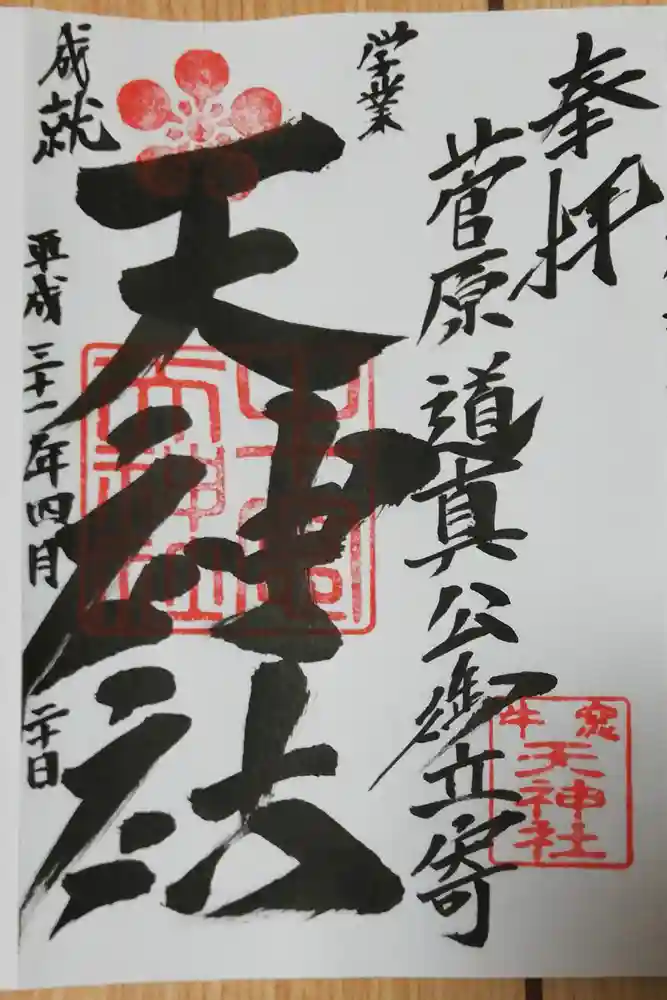 奉拝
菅原道真公御立寄
学業
天神社
成就
平成三十一年四月二十日
牛窓
天神社